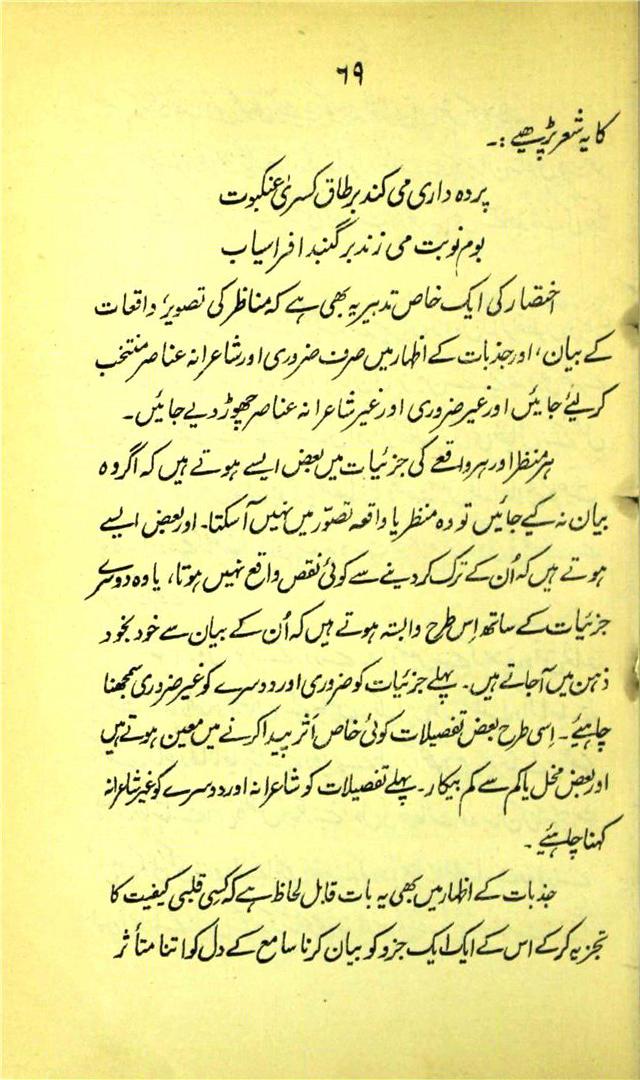 ۶۹
کا یہ شعر پڑھیے :۔
پردہ داری می کند بر طاق کسریٰ عنکبوت
بوم نوبت می زند بر گنبد افراسیاب
اختصار کی ایک خاص تدبیر یہ بھی ہے کہ مناظر کی تصویر، واقعات
کے بیان، اور جذبات کے اظہار میں صرف ضروری اور شاعرانہ عناصر منتخب
کر لیئے جائیں اور غیر ضروری اور غیر شاعرانہ عناصر چھوڑ دیے جائیں۔
ہر منظر اور ہر واقعے کی جزئیات میں بعض ایسے ہوتے ہیں کہ اگر وہ
بیان نہ کیے جائیں تو وہ منظر یا واقعہ تصوّر میں نہیں آ سکتا۔ اور بعض ایسے
ہوتے ہیں کہ اُن کے ترک کر دینے سے کوئی نقص واقع نہیں ہوتا، یا وہ دوسرے
جزئیات کے ساتھ اِس طرح وابستہ ہوتے ہیں کہ اُن کے بیان سے خود بخود
ذہن میں آ جاتے ہیں۔ پہلے جزئیات کو ضروری اور دوسرے کو غیر ضروری سمجھنا
چاہیئے۔ اِسی طرح بعض تفصیلات کوئی خاص اثر پیدا کرنے میں معین ہوتے ہیں
اور بعض مخل یا کم سے کم بیکار۔ پہلے تفصیلات کو شاعرانہ اور دوسرے کو غیر شاعرانہ
کہنا چاہیئے ۔
جذبات کے اظہار میں بھی یہ بات قابل لحاظ ہے کہ کسِی قلبی کیفیت کا
تجزیہ کر کے اس کے ایک ایک جزو کو بیان کرنا سامع کے دل کو اتنا متأثر